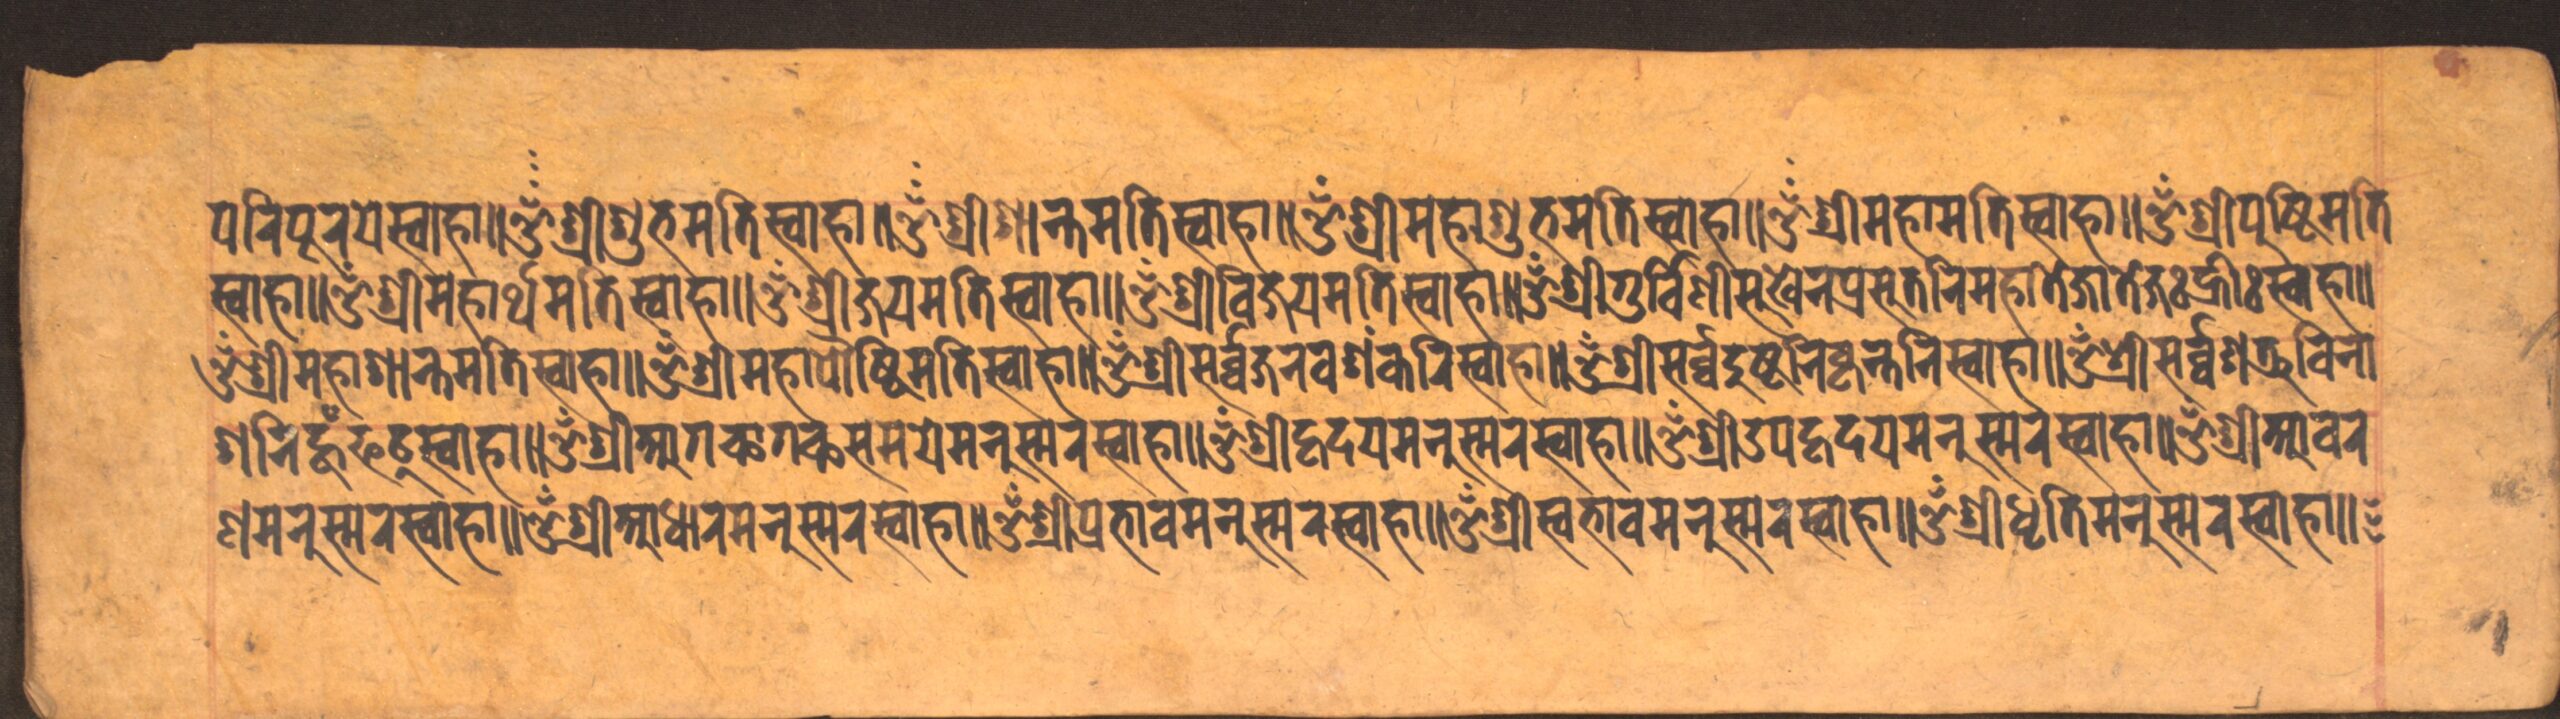 परिपूरये स्वाहा॥ ॐ श्री शुभमति स्वाहा॥ ॐ श्री शान्तमति स्वाहा॥ ॐ श्री महाशुभमति स्वाहा॥ ॐ श्री महामति स्वाहा॥ ॐ श्री पुष्टिमति
स्वाहा॥ ॐ श्री महार्थमति स्वाहा॥ ॐ श्री जयमति स्वाहा॥ ॐ श्री विजयमति स्वाहा॥ ॐ श्री गुर्विणी सुखेन प्रसुतनि महातेजा तेजः ह्रीः स्वाहा॥
ॐ श्री महाशान्तमति स्वाहा॥ ॐ श्री महापौष्टिमति स्वाहा॥ ॐ श्री सर्व्वजनवशंकरि स्वाहा॥ ॐ श्री सर्व्वदुष्टनिकृन्तनि स्वाहा॥ ॐ श्री सर्व्वशत्रुविना
शनि हूँ फट् स्वाहा॥ ॐ श्री आगच्छागच्छ समयेमनुस्मर स्वाहा॥ ॐ श्री हृदयमनुस्मर स्वाहा॥ ॐ श्री उपहृदयमनुस्मर स्वाहा॥ ॐ श्री आवर
णमनुस्मर स्वाहा॥ ॐ श्री आधारमनुस्मर स्वाहा॥ ॐ श्री प्रभावमनुस्मर स्वाहा॥ ॐ श्री स्वभावमनुस्मर स्वाहा॥ ॐ श्री धृतिमनुस्मर स्वाहा॥